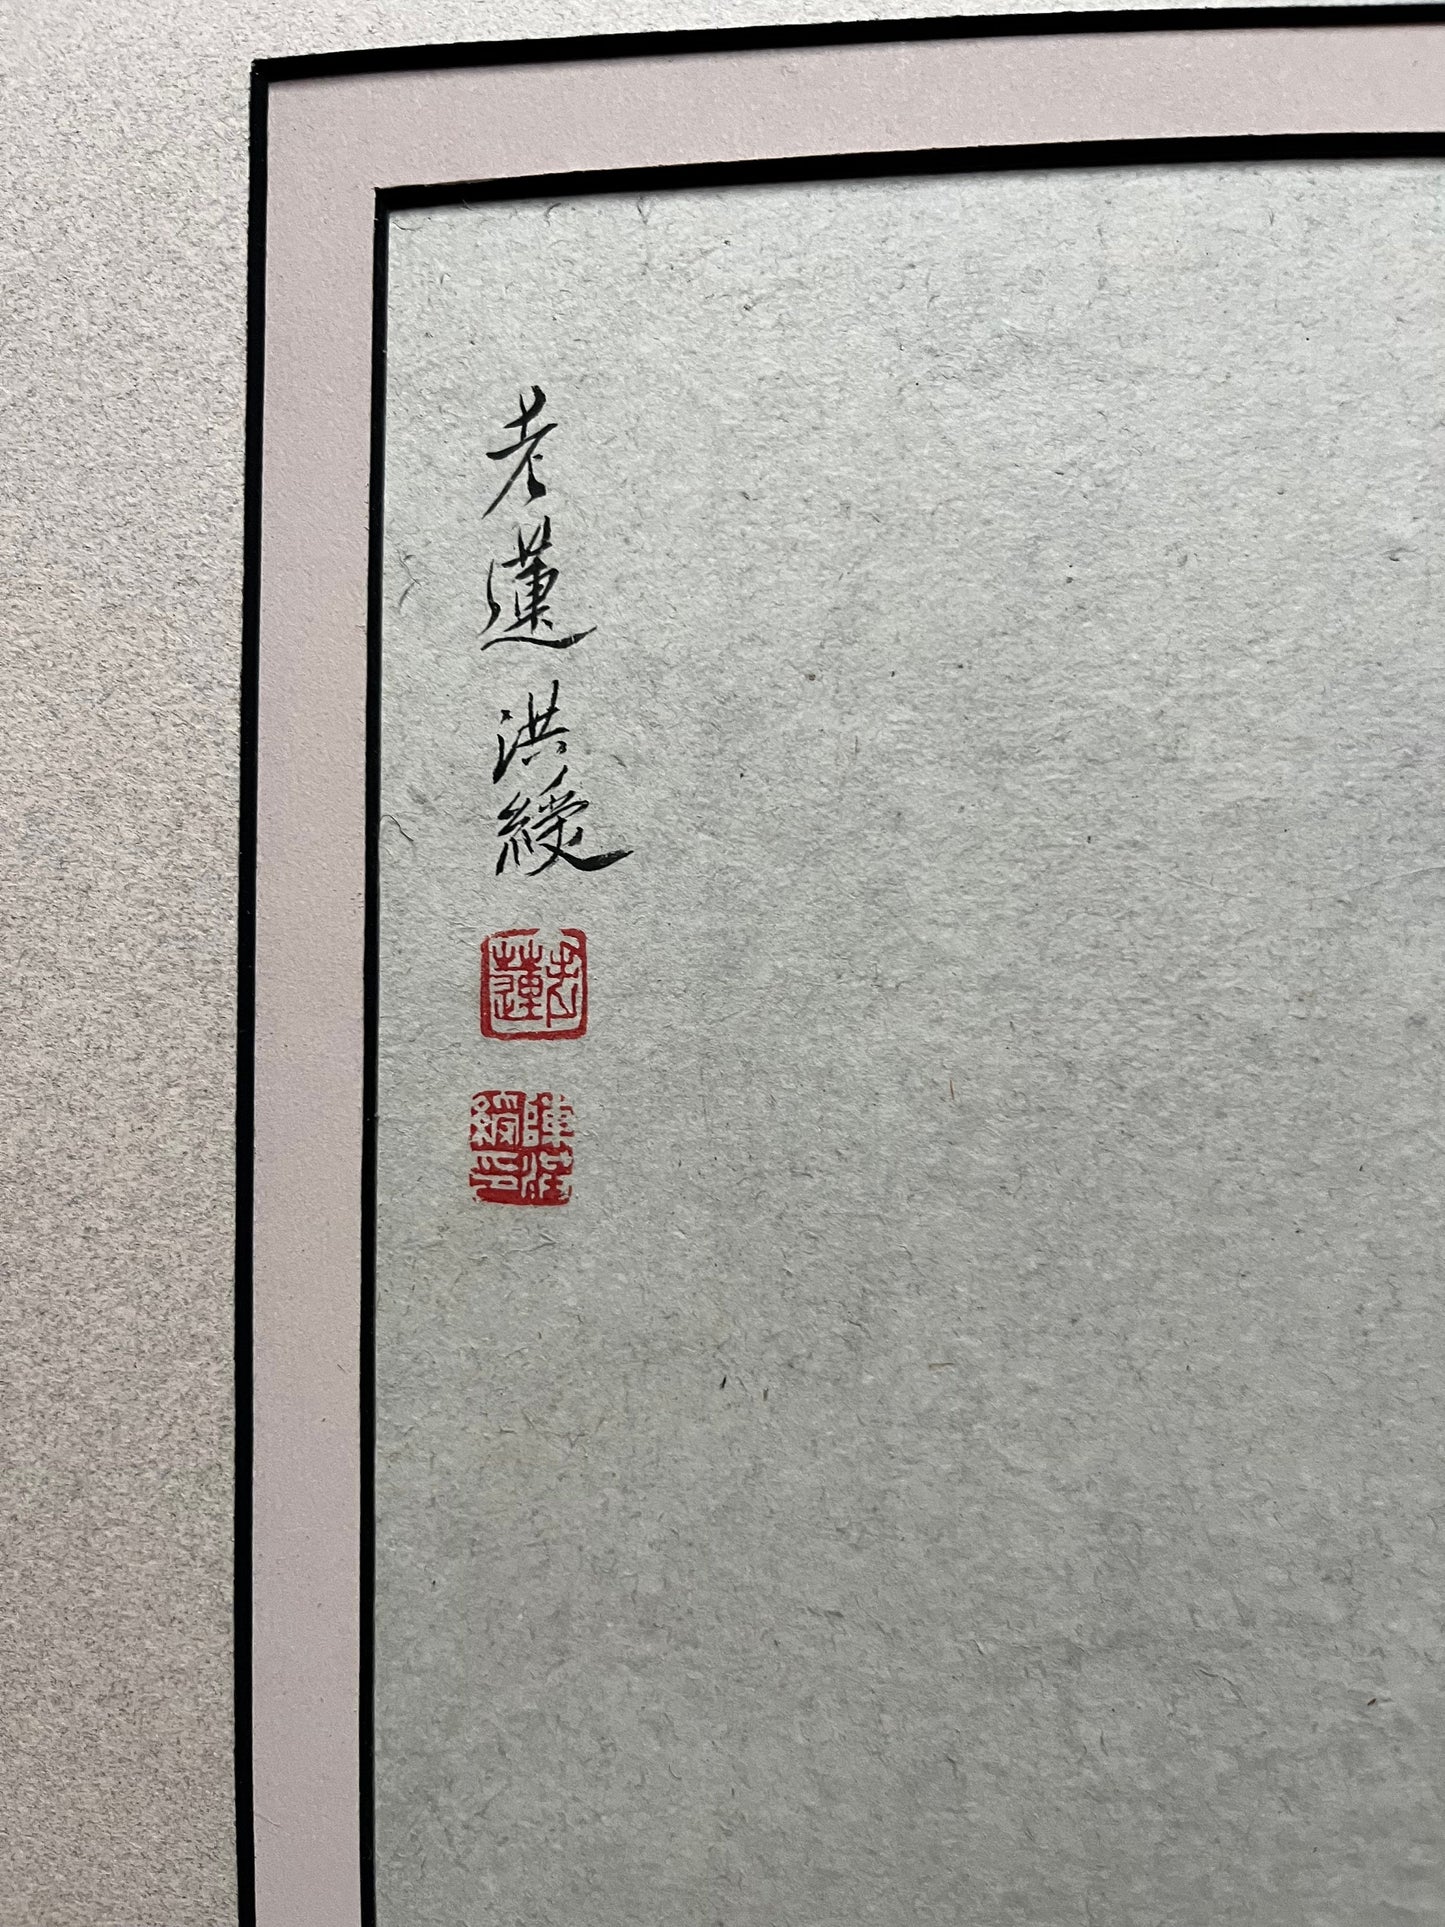 老蓮洪綬
老蓮
陳洪綬印